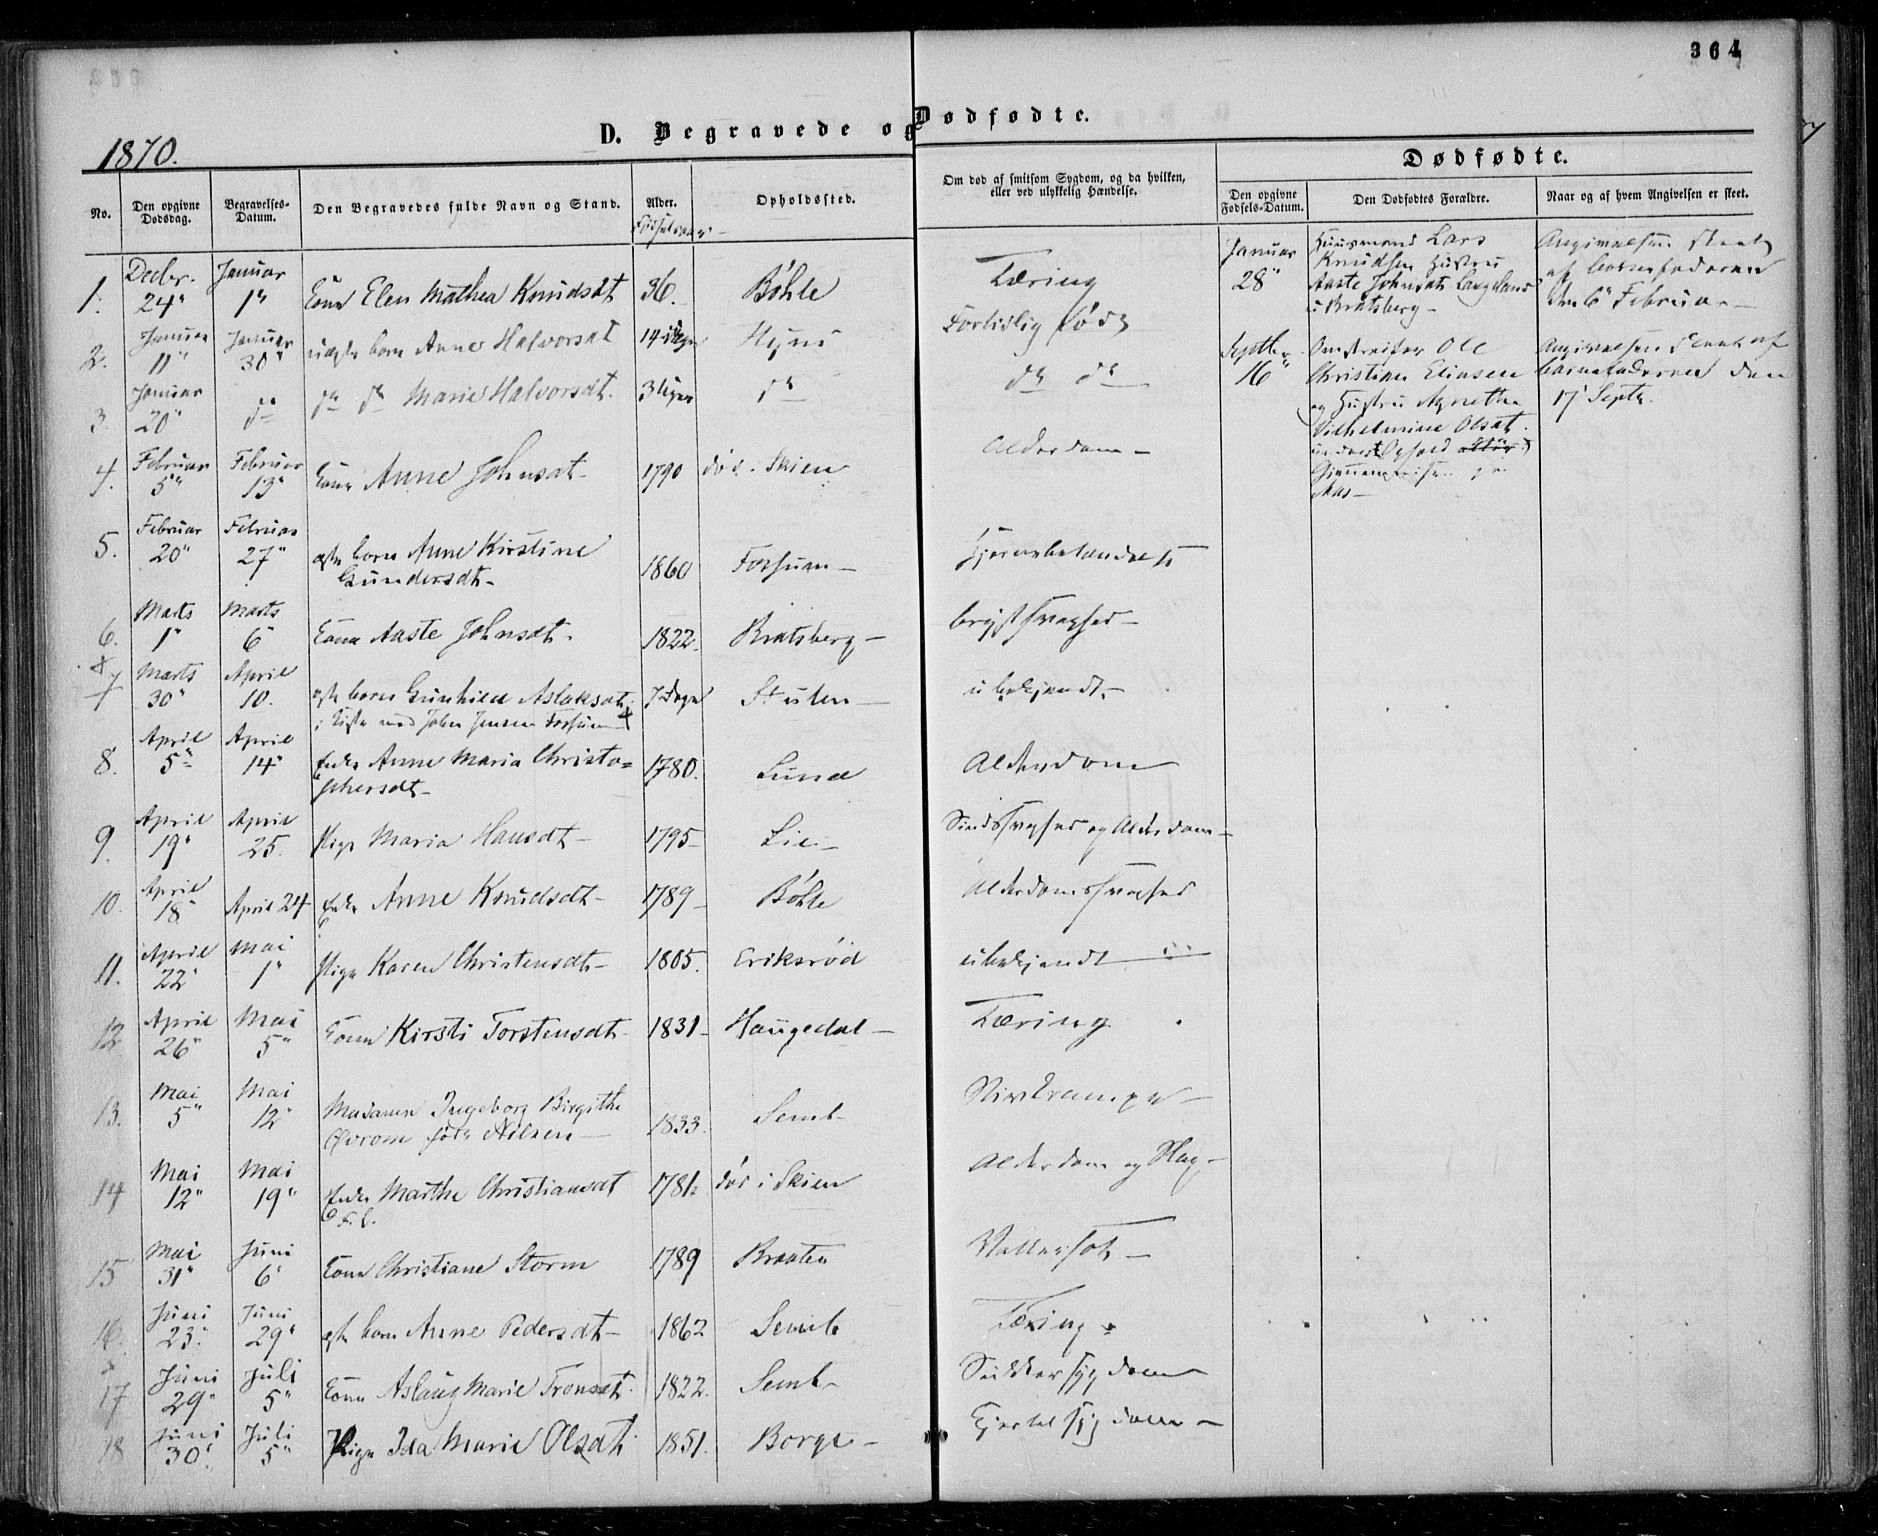 364
D. Begravede og Dødfødte.
1870.
Dødfødte.
No.
Den opgivne Dødsdag.
Begravelses-Datum.
Den Begravedes fulde Navn og Stand.
Alder.
Fødselsaar
Opholdssted.
Om død af smitsom Sygdom, og da hvilken, eller ved ulykkelig Hændelse.
Den opgivne Fødsels-Datum.
Den Dødfødtes Forældre.
Naar og af hvem Angivelsen er skeet.
1. Decbr. 24" Januar 1" Kone Elen Mathea Knudsdt 36. Bøhle Tæring
2. Januar 11" Januar 30" uægte barn Anne Halvorsdt 14 dage Fortidlig født
3. Januar 20" do do do Marie Halvorsdt. 3 Uger do do do
4. Februar 5" Februar 13" Kone Anne Johnsdt 1790 død i Skien Alderdom
5. Februar 20" Februar 27" ægte barn Anne Kirstine Gundersdt 1860 Fossum Hjernebetændelse
6. Marts 1" Marts 6" Kone Aaste Johnsdt. 1822. Bratsberg Brystsvaghed
7 Marts 30" April 10. ægte barn Gunhild Aslaksdt. 7 Dage Stulen ubekjendt
i Kiste med John Jensen Fossum
8. April 5" April 14" Enke Anne Maria Christophersdt 1780. Lund Alderdom
9. April 19" April 25. Pige Maria Hansdt 1795 Lie Sindssvaghed og Alderdom
10. April 18" April 24 Enke Anne Knudsdt 1789 Bøhle Alderdomssvaghed
11. April 22" Mai 1" Pige Karen Christensdt 1805. Eriksrød ubekjendt
12 April 26" Mai 5" Kone Kirsti Torstensdt 1831 Haugedal Tæring
13. Mai 5" Mai 12" Madamen Ingeborg Birgithe Øvrom født Nilsen 1833. Semb Stivkrampe
14 Mai 12" Mai 19" Enke Marthe Christiansdt 1781. død i Skien Alderdom og Slag
F. L.
15 Mai 31" Juni 6" Kone Christiane Storm 1789 Braaten Vattersot
16. Juni 23" Juni 29" ægte barn Anne Pedersdt 1862 Semb Tæring
17 Juni 29" Juli 5" Kone Aslaug Marie Tronsdt. 1822. Semb Sukkersygdom
18 Juni 30" Juli 5" Pige Ida Marie Olsdt. 1851. Borge Kjertelsygdom
Januar 28" Huusmand Lars Knudsen Hustru Aaste Johnsdt Langeland u Bratsberg
Angivelsen skeet af barnefaderen den 6" Februar
Septbr 16" Omstreifer Ole Christian Eliasen og Hustru Agnethe Vilhelmine Olsdt. under Ophold
Angivelsen skeet af barnefaderen den 17 Septbr.